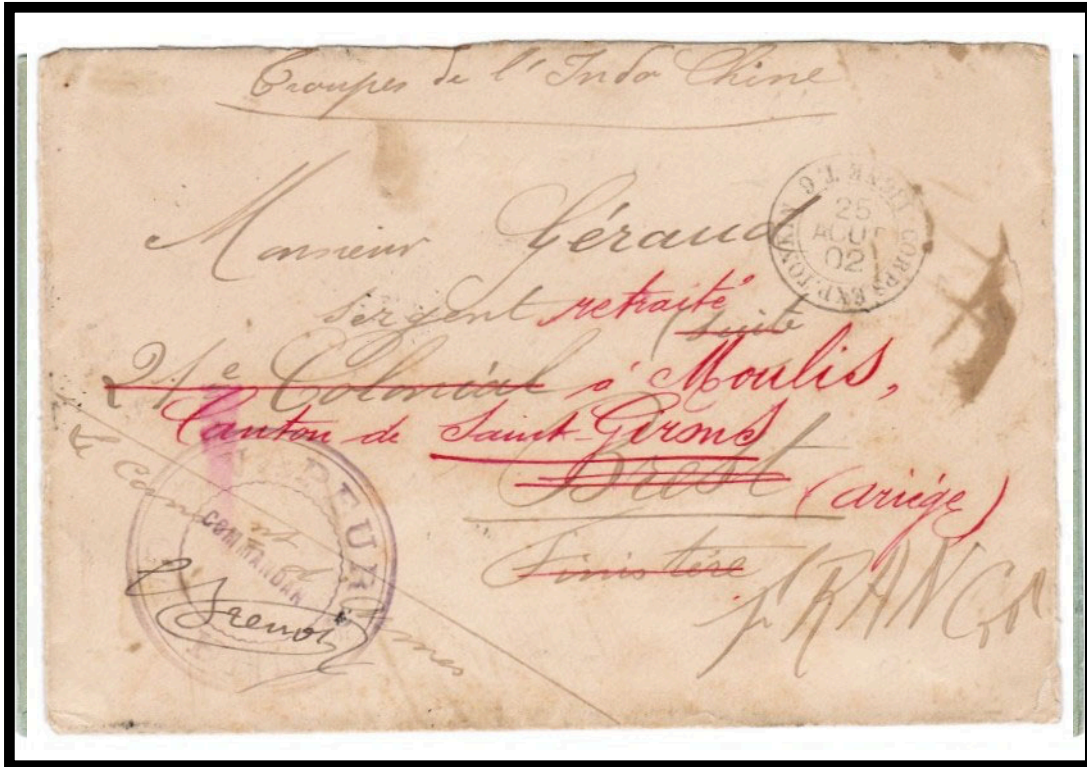 Troupes de l'Indo Chine
Monsieur Géraud
Sergent retraité
(suite
21e Colonial à Moulis,
Canton de Saint-Girons
Brest (Ariége)
Finistère
FRANCE
CORPS EXP. TONKIN
25
AOUT
02
Le Com
COMMANDAN